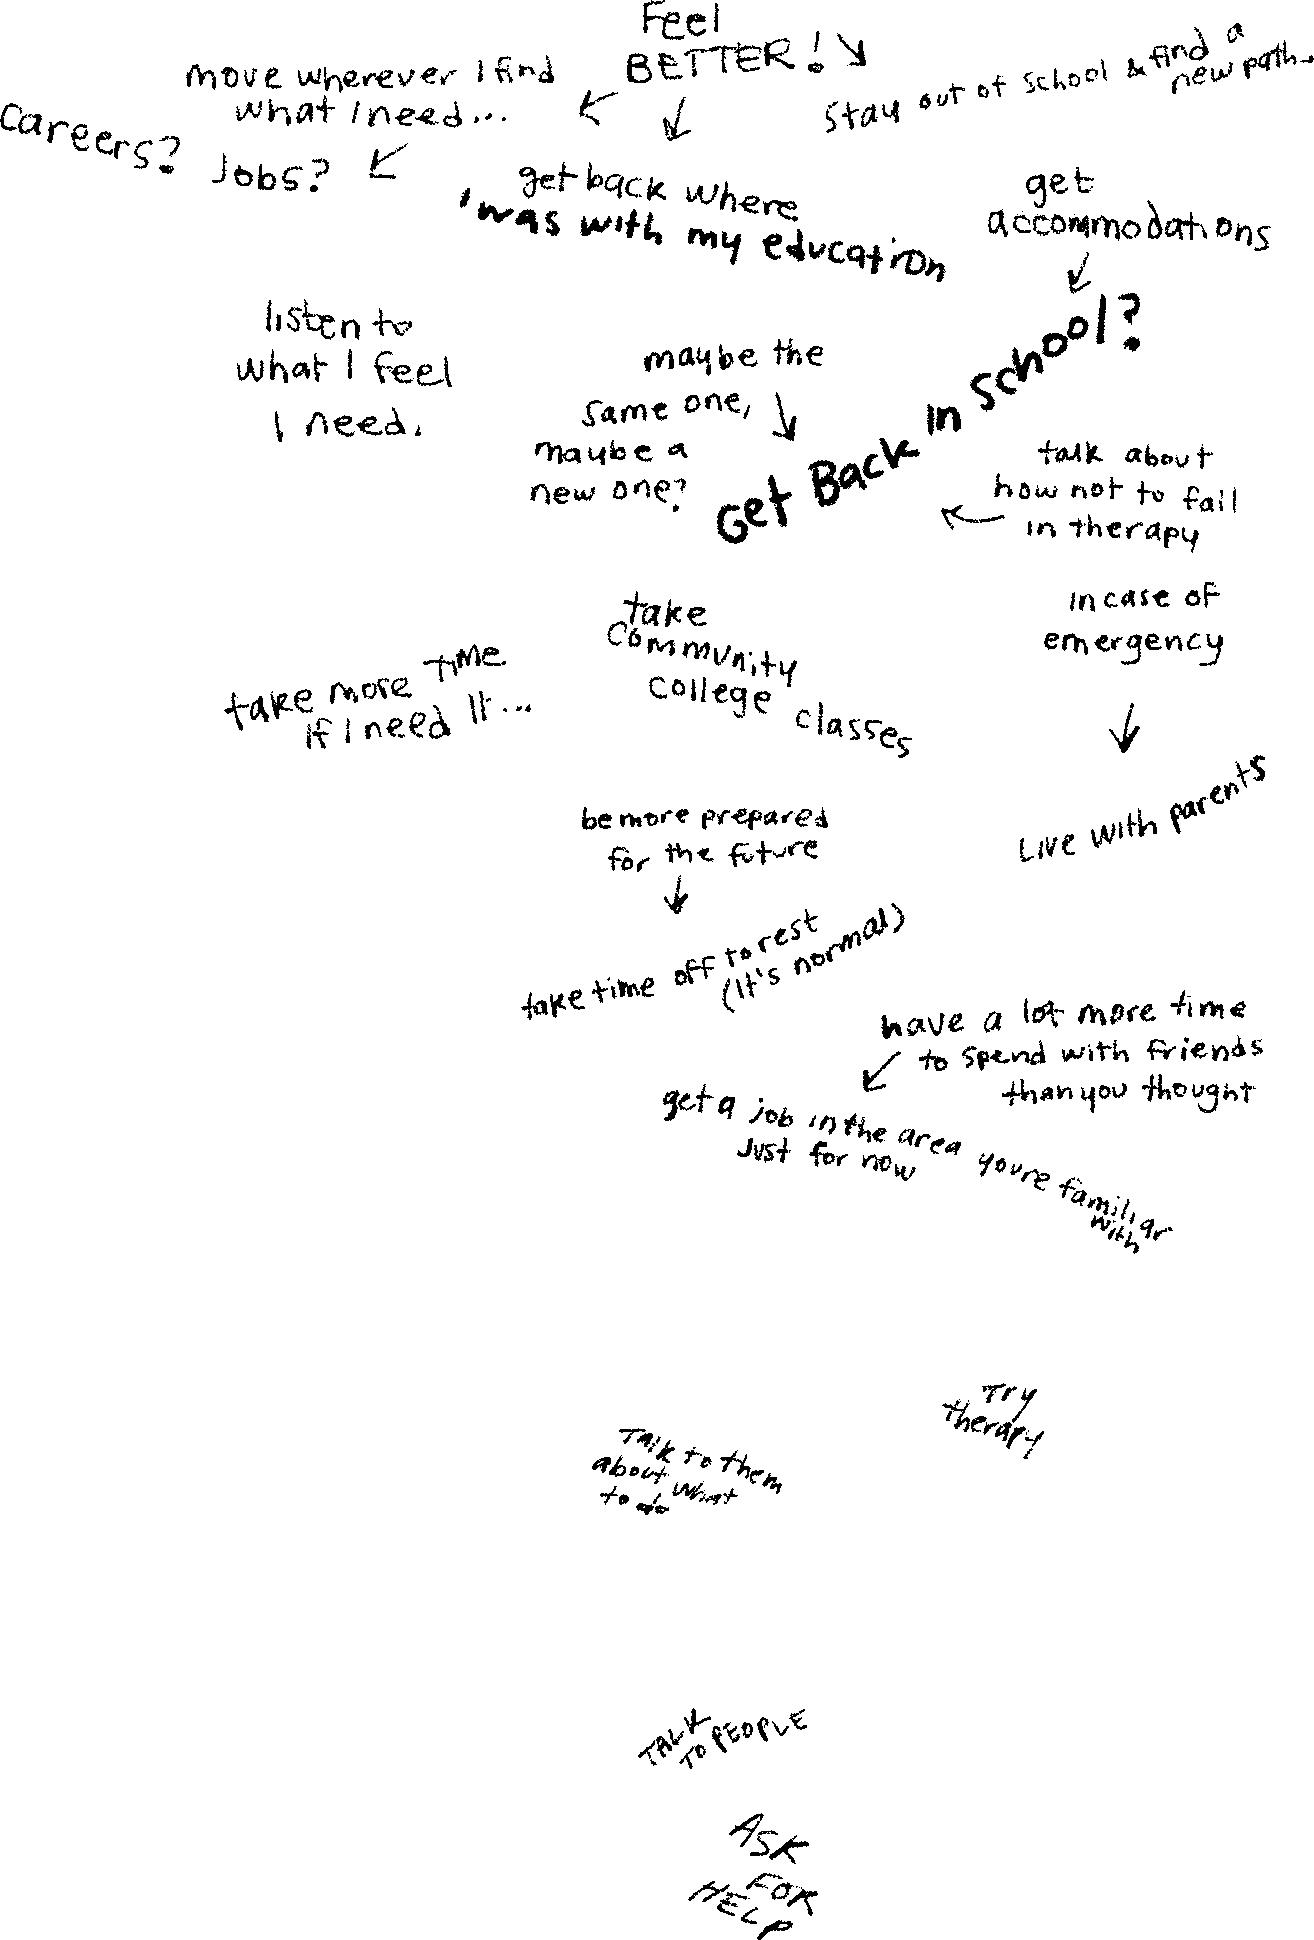 Feel
BETTER!
move wherever I find
what I need...
Stay out of school & find a
new path.
careers? Jobs?
get back where
I was with my education
get
accommodations
listen to
what I feel
I need.
maybe the
same one,
maybe a
new one?
Get Back in school?
talk about
how not to fail
in therapy
in case of
emergency
take
community
college classes
take more time
if I need it...
Live with parents
be more prepared
for the future
take time off to rest
(It's normal)
have a lot more time
to spend with friends
than you thought
get a job in the area youre familiar
with
Just for now
Try
therapy
Talk to them
about what
to do
TALK
TO PEOPLE
ASK
FOR
HELP